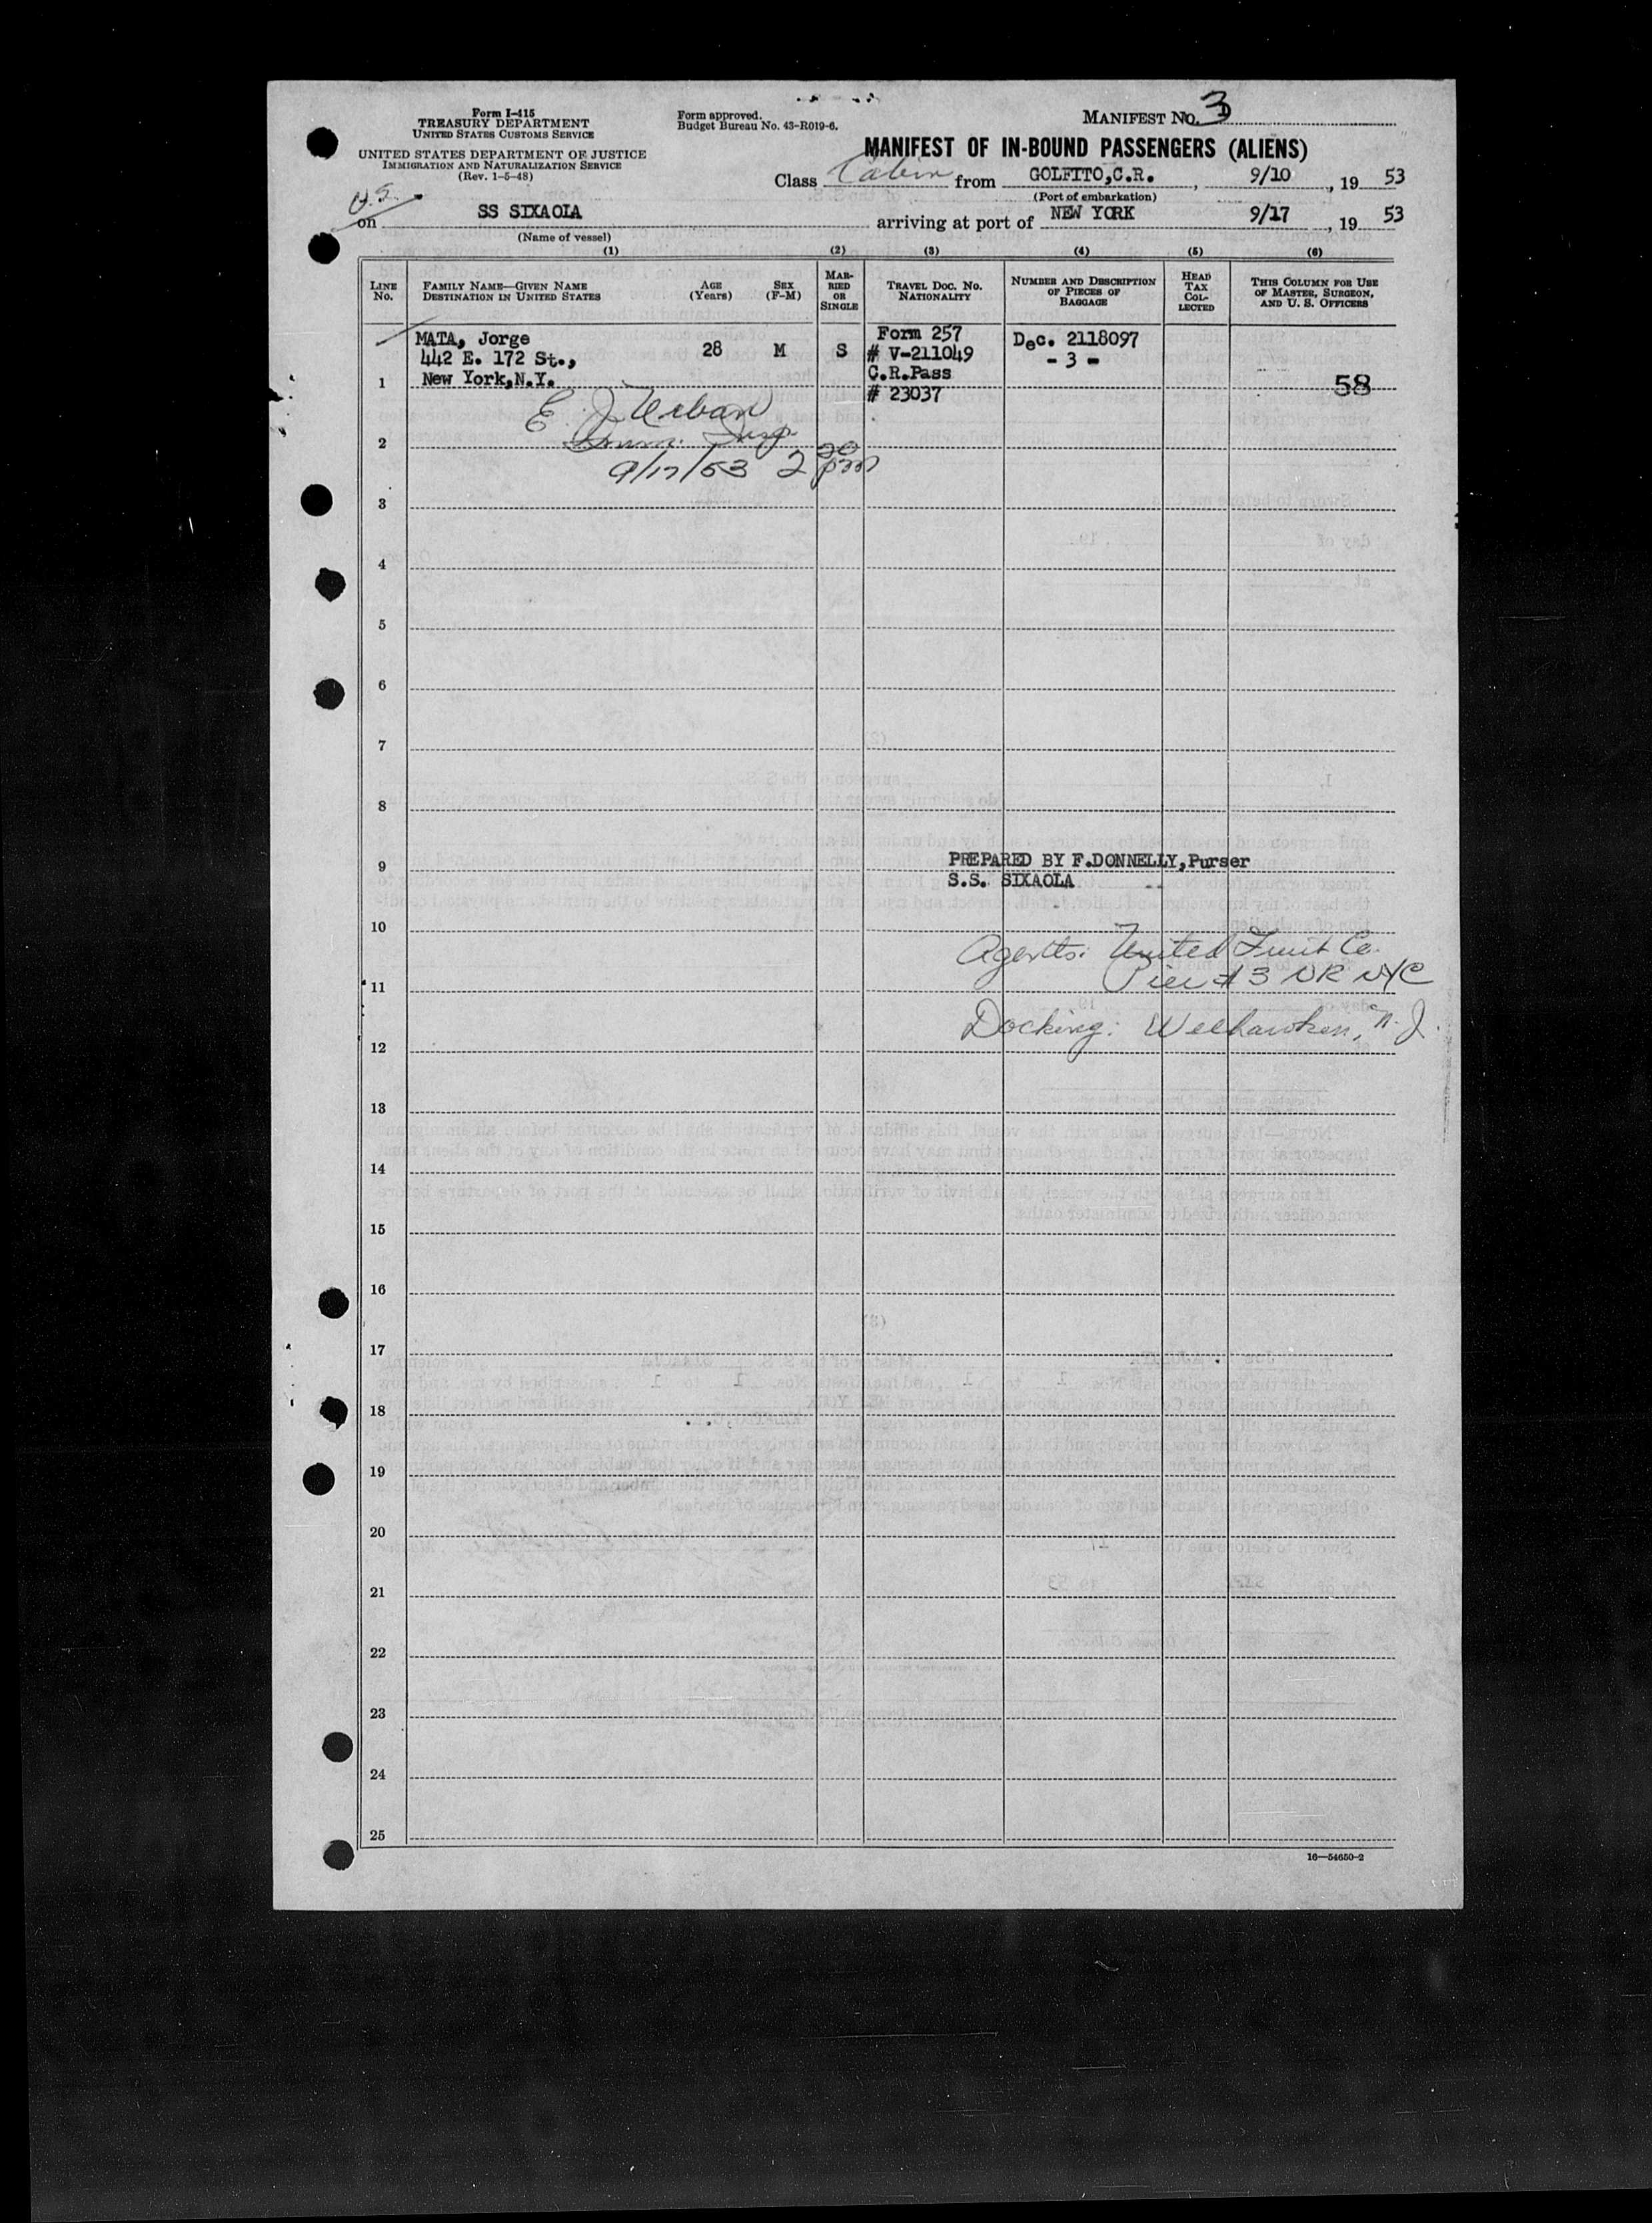 Form I-415
TREASURY DEPARTMENT
UNITED STATES CUSTOMS SERVICE
UNITED STATES DEPARTMENT OF JUSTICE
IMMIGRATION AND NATURALIZATION SERVICE
(Rev. 1-5-48)
Form approved.
Budget Bureau No. 43-R019-6.
MANIFEST No. 3
MANIFEST OF IN-BOUND PASSENGERS (ALIENS)
Class Cabin from GOLFITO,C.R., 9/10, 19 53
(Port of embarkation)
U.S.
on SS SIXAOLA arriving at port of NEW YORK 9/17, 19 53
(Name of vessel)
(1) (2) (3) (4) (5) (6)
LINE No. FAMILY NAME—GIVEN NAME DESTINATION IN UNITED STATES AGE (Years) SEX (F-M) MARRIED OR SINGLE TRAVEL DOC. NO. NATIONALITY NUMBER AND DESCRIPTION OF PIECES OF BAGGAGE HEAD TAX COLLECTED THIS COLUMN FOR USE OF MASTER, SURGEON, AND U. S. OFFICERS
MATA, Jorge 28 M S Form 257 Dec. 2118097
442 E. 172 St., # V-211049 - 3 -
1 New York,N.Y. C.R.Pass 58
# 23037
E. J. Urban
2 Imm. Insp.
9/17/53 2 20 pm
3
4
5
6
7
8
9 PREPARED BY F.DONNELLY,Purser
S.S. SIXAOLA
10
Agents: United Fruit Co.
11 Pier #3 NR NYC
Docking: Weehawken, N.J.
12
13
14
15
16
17
18
19
20
21
22
23
24
25
16—54650-2